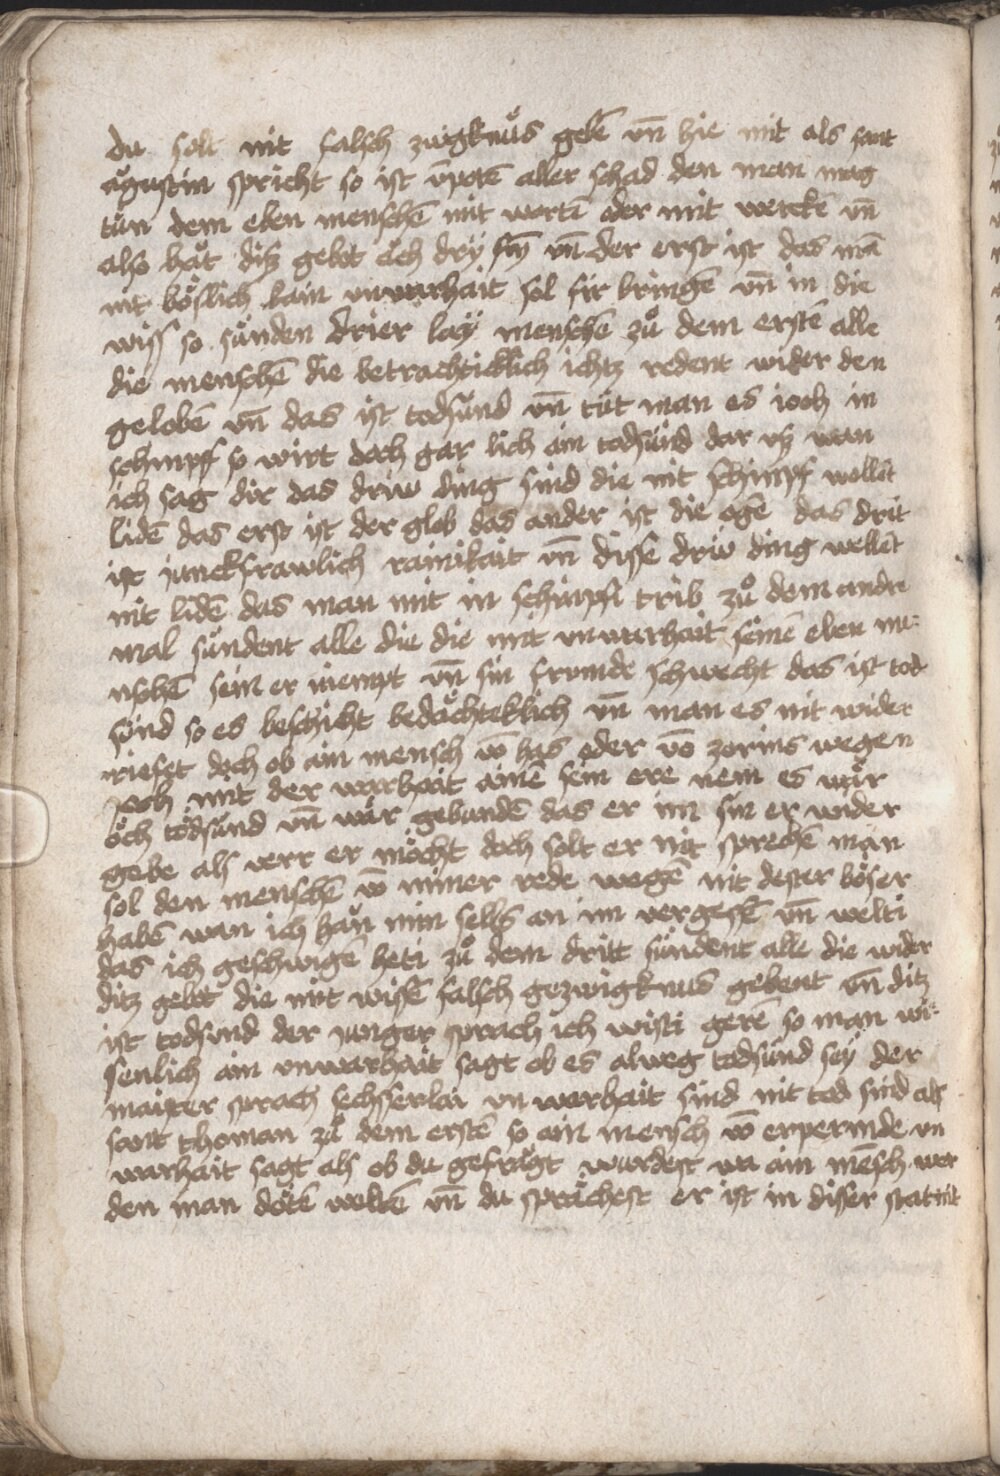 du solt nit falsch zúgknuͤs gebē vn̄ hie mit als sant
aͮgustin spricht so ist v̄potē aller schad den man mag
tuͤn dem eben menschē mit wortē oder mit werckē vn̄
also haͮt ditz gebot oͮch dry sin̄ vn̄ der erst ist das mā
nit boͤslich kain vnwarhait sol fir bringē vn̄ in die
wiss so súnden drier lay menschē zuͦ dem erstē alle
die menschē die betrachticklich ichtz redent wider den
gelobē vn̄ das ist todsúnd vn̄ tuͤt man es ioch in
schimpf so wirt doch gar lich ain todsúnd dar vß wan
ich sag dir das driw ding sind die nit schimpf wellēt
lidē das erst ist der glob das ander ist die ogē das drit
ist iunckfrawlich rainikait vn̄ disse driw ding wellēt
nit lidē das man mit in schimpf trib zuͦ dem andrē
mal súndent alle die die mit vnwarhait seinē eben me=
nschē sein er niempt vn̄ sin frumde schwecht das ist tod
súnd so es beschicht bedaͤchteklich vn̄ man es nit wider
rieffet doch ob ain mensch vō has oder vō zorins wegen
ioch mit der warhait ainē sein ere nem es waͤr
oͮch todsúnd vn̄ waͤr gebundē das er im sin er wider
gebe als verr er moͤcht doch solt er nit sprechē man
sol den menschē vō miner rede wegē nit dester boͤser
habē wan ich haͮn min selbs an im vergessē vn̄ welti
das ich geschwigē heti zuͦ dem dritt súndent alle die wider
ditz gebot die mit wissē falsch gezúigknus gebent vn̄ ditz
ist todsúnd der iunger sprach ich wisti gerē so man wi=
senlich ain vnwarhait sagt ob es alweg todsúnd sey der
maister sprach sechserlai vn warhait sind nit tod súnd als
sant thoman zuͦ dem erstē so ain mensch vō erpermde vn
warhait sagt als ob du gefragt wurdest wa ain mēsch wer
den man doͤtē weltē vn̄ du spraͤchest er ist in disser stat nit